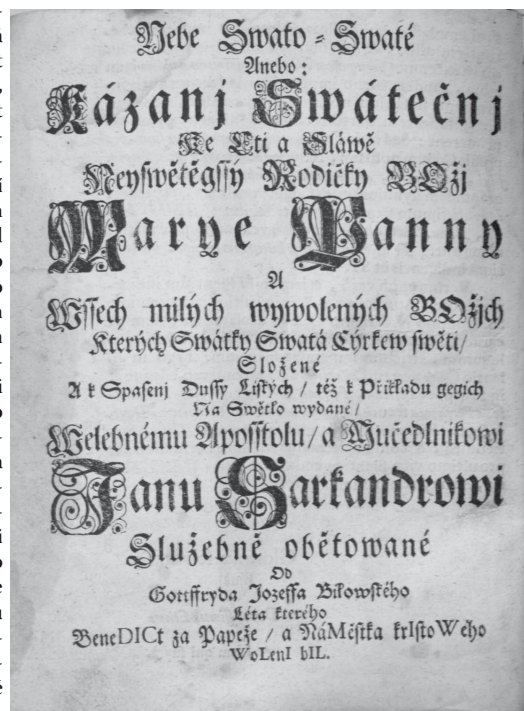 Nebe Swato-Swaté
Anebo:
Kázanj Swátečnj
Ke Cti a Sláwě
Neyswětěgssý Rodičky BOžj
Marye Panny
A
Wssech milých wywolených BOžjch
Kterých Swátky Swatá Cýrkew swětj/
Složené
A k Spasenj Dussý Lidských/ též k Přjkladu gegich
Na Swětlo wydané/
Welebnému Aposstolu/ a Mučedlnikowi
Janu Sarkandrowi
Služebně obětowané
Od
Gottffryda Jozeffa Bilowského
Léta kterého
BeneDICt za Papeže/ a NáMěstka krIstoWého
WoLenI bIL.